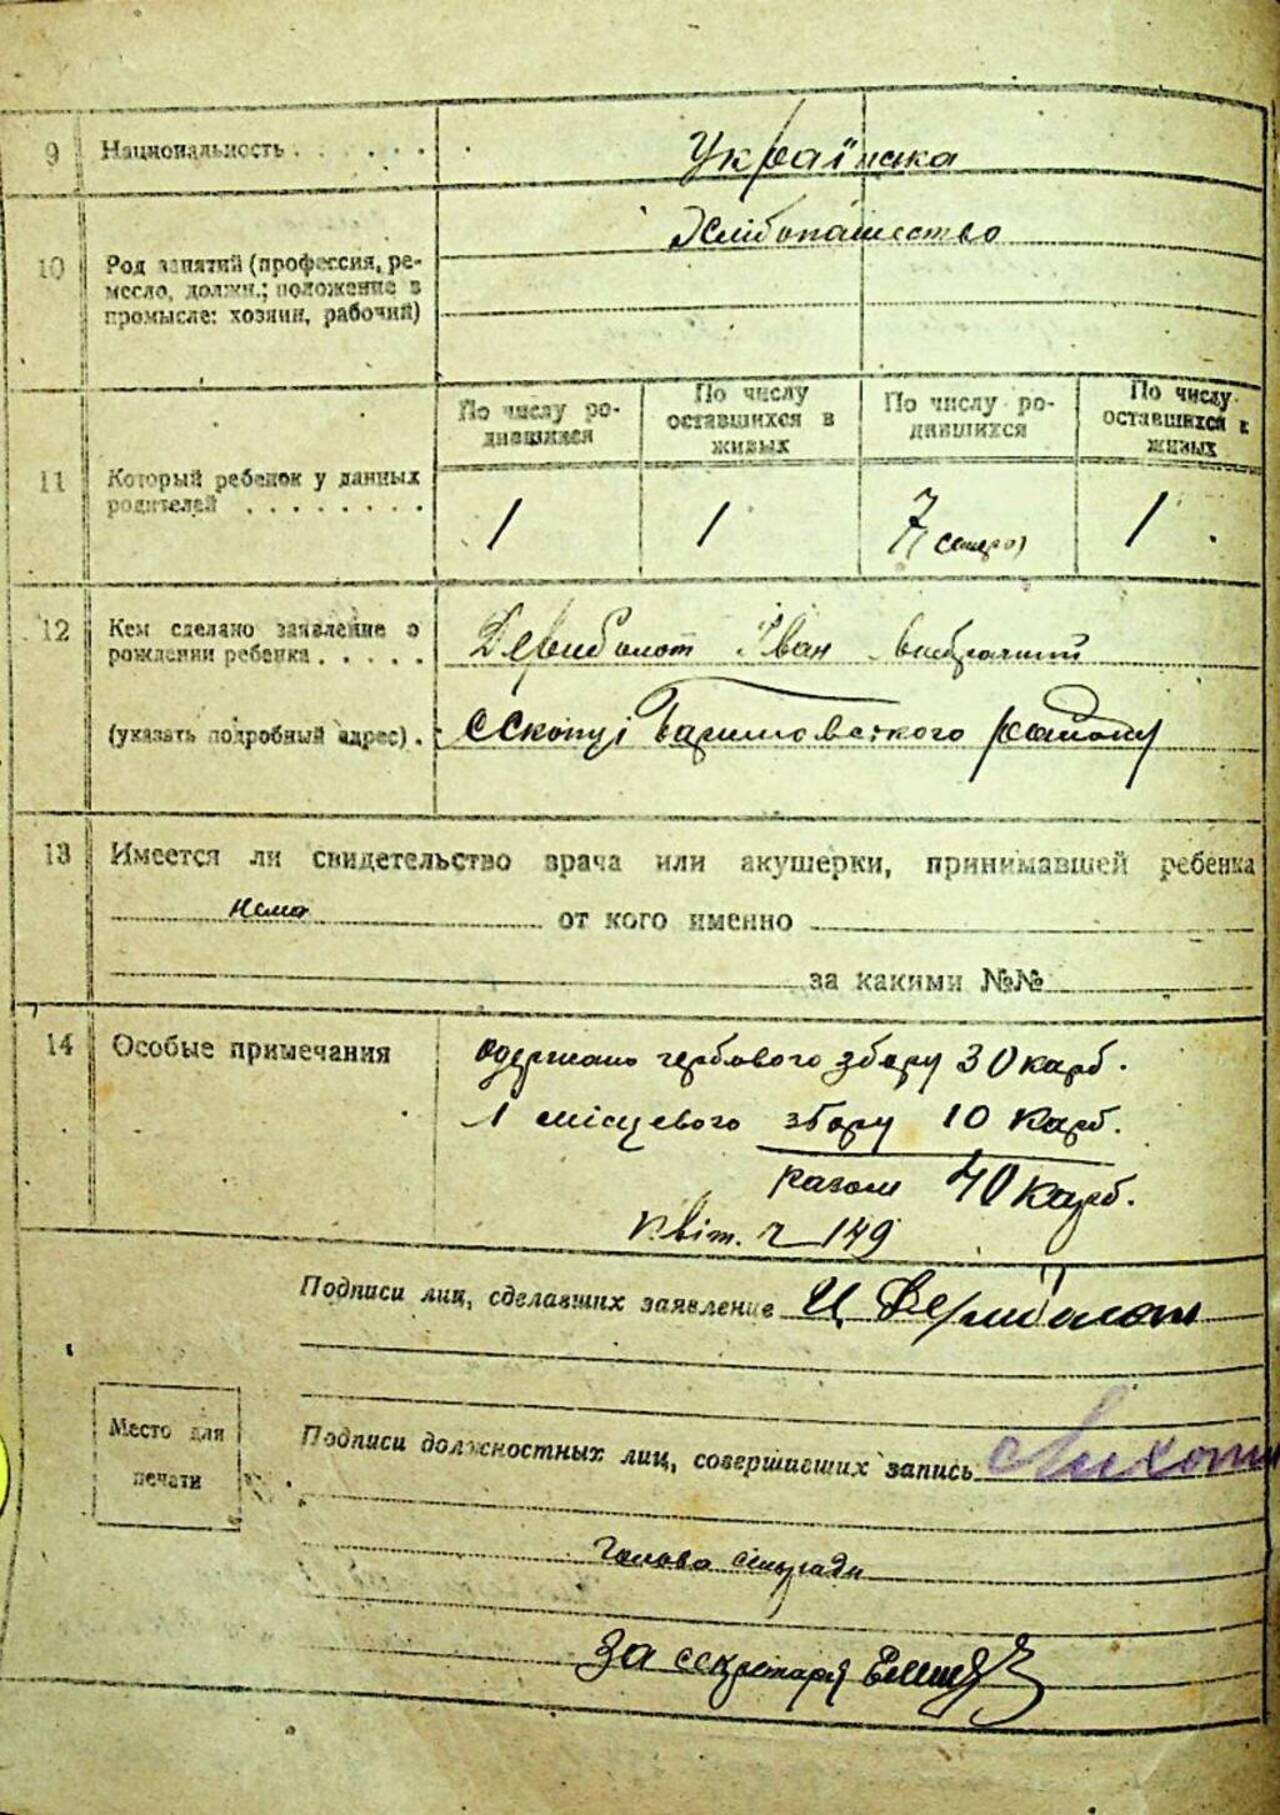 9 Национальность . . . . . . Українська
Хліборобство
10 Род занятий (профессия, ре-
месло, должн.; положение в
промысле: хозяин, рабочий)
По числу ро-
дившихся
По числу
оставшихся в
живых
По числу ро-
дившихся
По числу
оставшихся в
живых
11 Который ребенок у данных
родителей . . . . . . . .
1 1 7 1
12 Кем сделано заявление о
рождении ребенка . . . . .
Дериболот Іван
(указать подробный адрес) .
району
13 Имеется ли свидетельство врача или акушерки, принимавшей ребенка
нема от кого именно
за какими №№
14 Особые примечания
одержано гербового збору 30 карб.
і місцевого збору 10 карб.
разом 40 карб.
квіт. ч 149
Подписи лиц, сделавших заявление И Дериболот
Место для
печати
Подписи должностных лиц, совершивших запись
Голова сільради
За секретаря